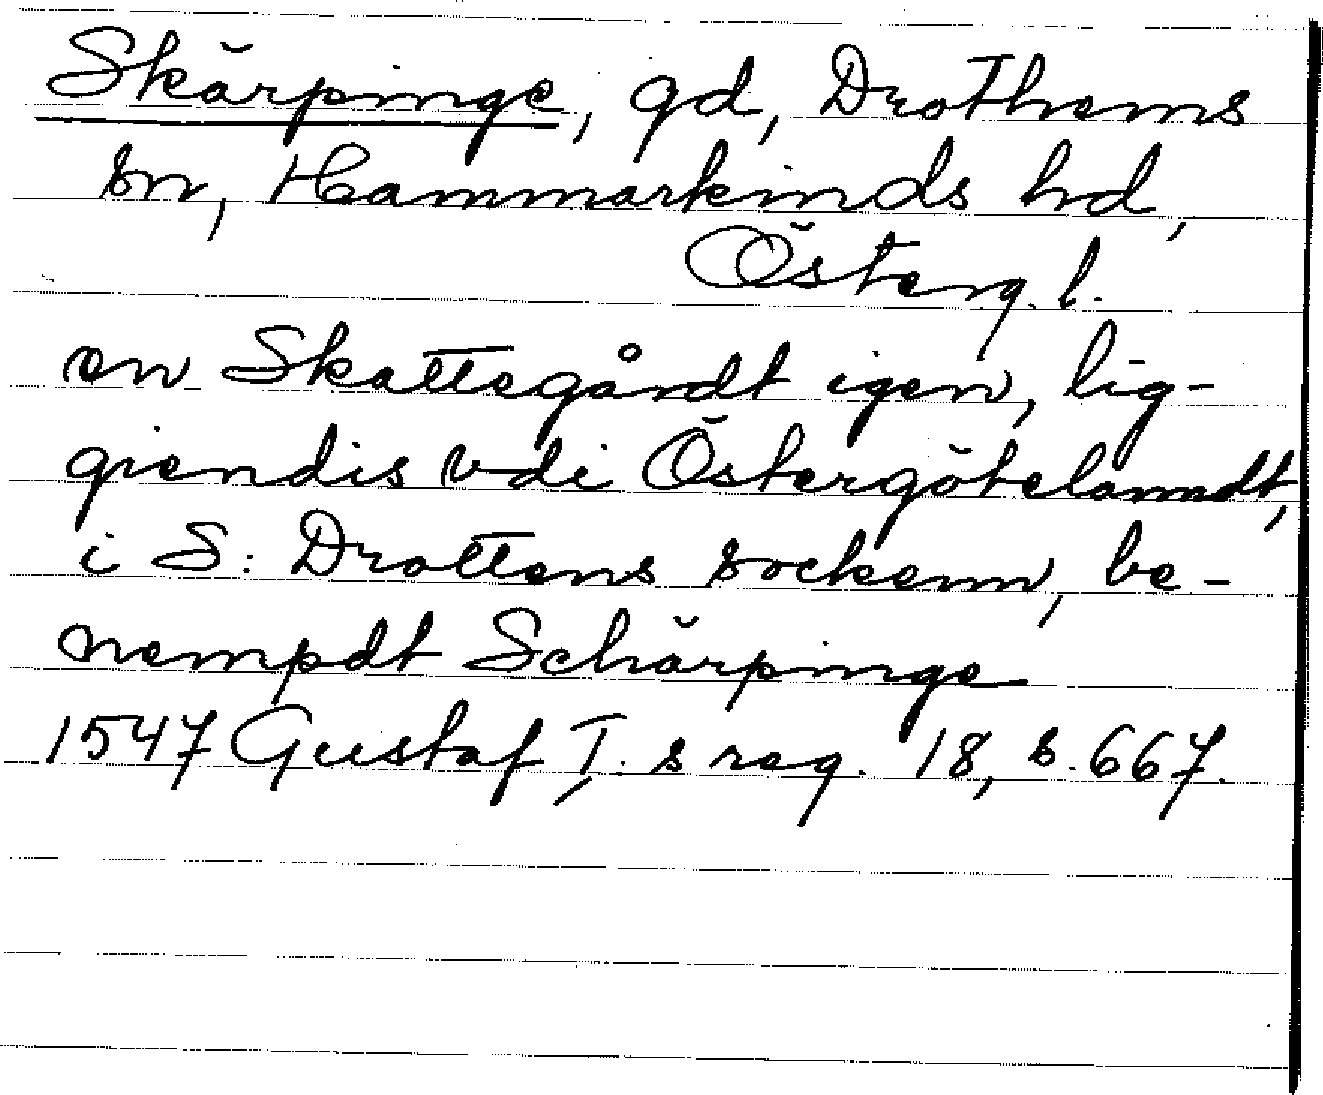 Skärpinge, gd, Drothems
sn, Hammarkinds hd,
Österg. l.
en Skattegårdt igen, lig-
giendis vdi Östergötelanndt,
i S: Drottens sockenn, be-
nempdt Schärpinge
1547 Gustaf I:s reg. 18, s. 667.